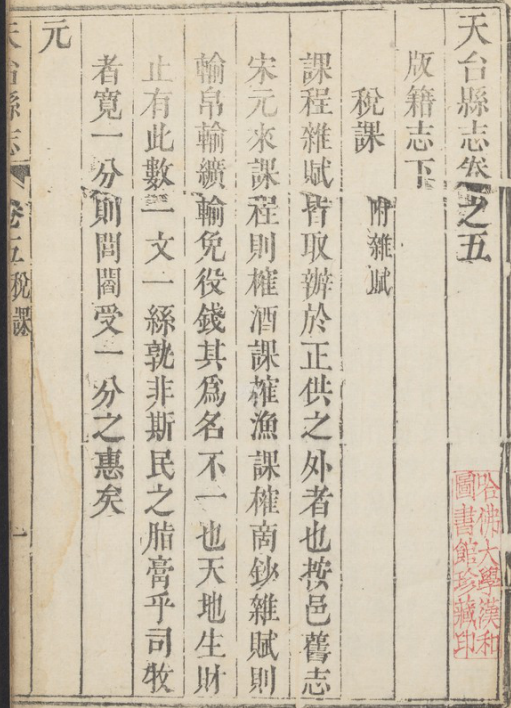 天台縣志卷之五
版籍志下
稅課 附雜賦
課程雜賦皆取辦於正供之外者也按邑舊志
宋元來課程則榷酒課榷漁課榷商鈔雜賦則
輸帛輸纊輸免役錢其爲名不一也天地生財
止有此數一文一絲孰非斯民之脂膏乎司牧
者寬一分則閭閻受一分之惠矣
元
天台縣志
卷五 稅課
一
哈佛大學漢和
圖書館珍藏印